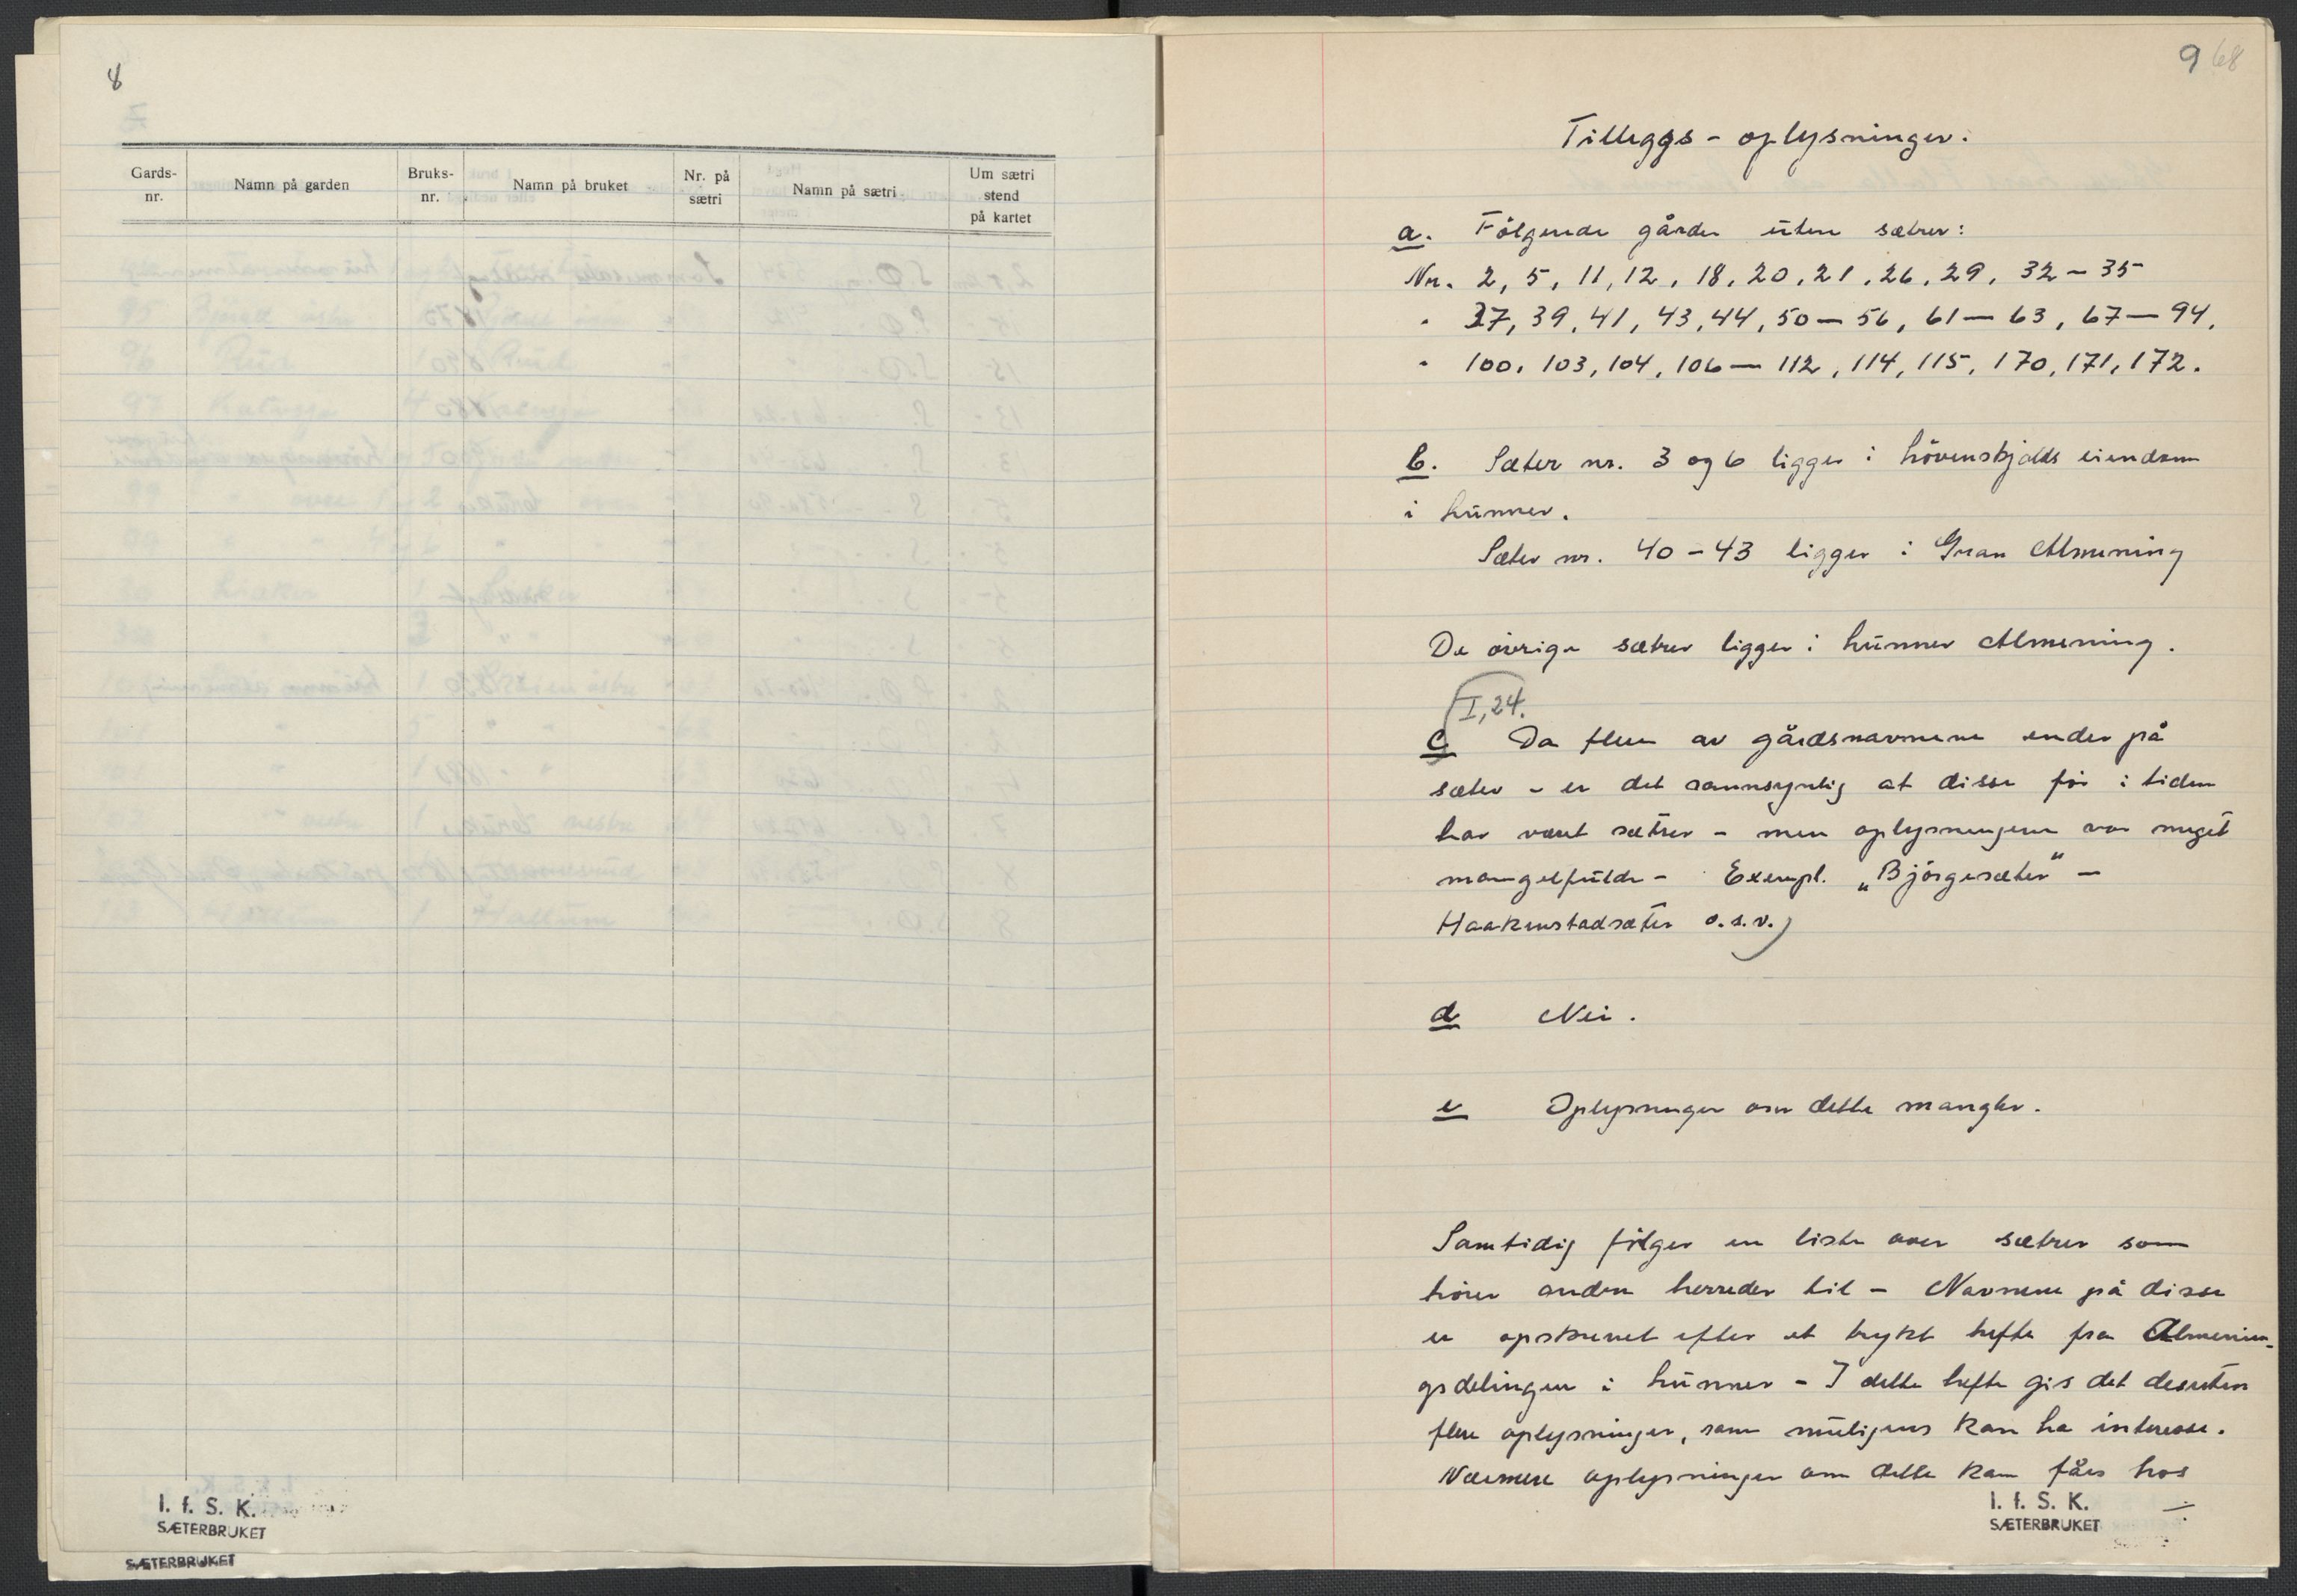 8
Gards-
nr.
Namn på garden
Bruks-
nr.
Namn på bruket
Nr. på
sætri
Namn på sætri
Um sætri
stend
på kartet
I. f. S. K.
SÆTERBRUKET
SÆTERBRUKET
9 68
Tilleggs - oplysninger.
a. Følgende gårder uten sætrer:
Nr. 2, 5, 11, 12, 18, 20, 21, 26, 29, 32 – 35
" 37, 39, 41, 43, 44, 50 – 56, 61 – 63, 67 – 94,
" 100, 103, 104, 106 – 112, 114, 115, 170, 171, 172.
b. Sæter nr. 3 og 6 ligger i eiendom
i hunner.
Sæter nr. 40 – 43 ligger i Gran Almening
De øvrige sætrer ligger i hunner Almening.
I, 24.
c Da flere av gårdsnavnene ender på
sæter – er det sannsynlig at disse før i tiden
har været sætrer – men oplysningene var meget
mangelfulde – Exempl. „Bjørgesæter" –
Haakenstadsæter o.s.v.)
d Nei.
e Oplysninger om dette mangler.
Samtidig følger en liste over sætrer som
hører andre herreder til – Navnene på disse
er opskrevet efter et trykt hefte fra Almenin-
gsdelingen i hunner – I dette hefte gis det desuten
flere oplysninger, som muligens kan ha interesse.
Nærmere oplysninger om dette kan fåes hos
I. f. S. K.
SÆTERBRUKET